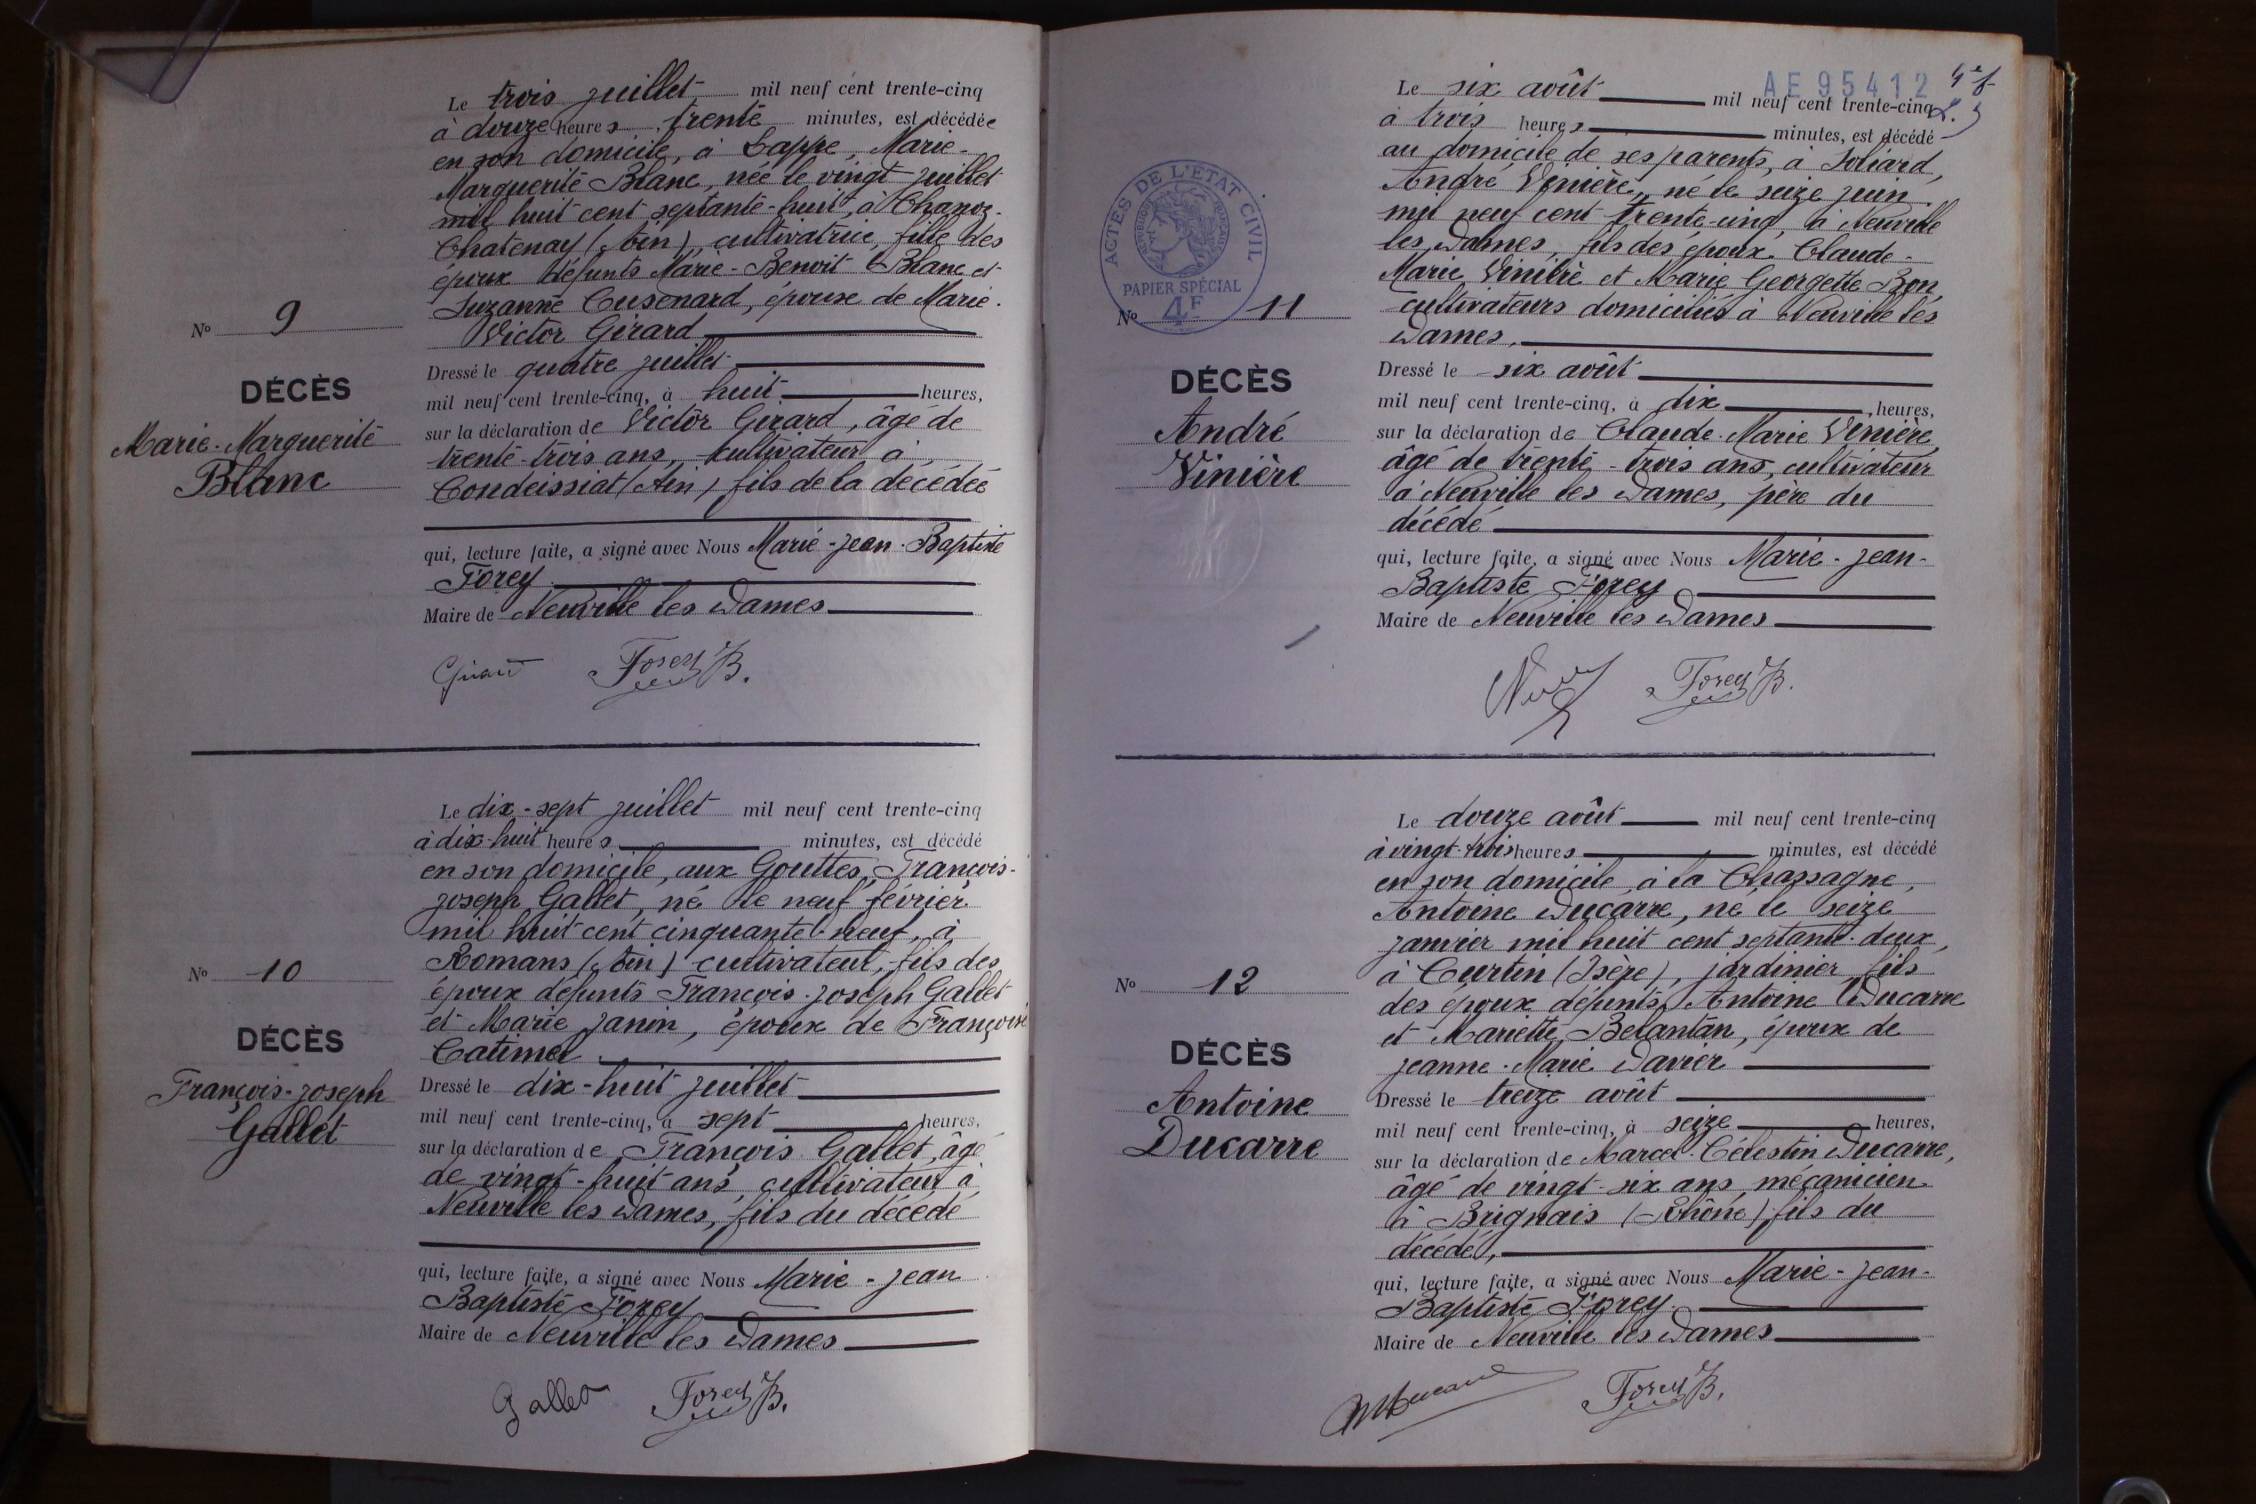 Le trois juillet mil neuf cent trente-cinq
à douze heures trente minutes, est décédée
en son domicile, à Lappe, Marie-
Marguerite Blanc, née le vingt juillet
mil huit cent septante-huit, à Chanoz-
Chatenay (Ain), cultivatrice, fille des
époux défunts Marie-Benoit Blanc et
Suzanne Cusenard, épouse de Marie-
Victor Girard
N° 9
DÉCÈS
Marie-Marguerite
Blanc
Dressé le quatre juillet
mil neuf cent trente-cinq, à huit heures,
sur la déclaration de Victor Girard, âgé de
trente-trois ans, cultivateur à
Condeissiat (Ain) fils de la décédée
qui, lecture faite, a signé avec Nous Marie-Jean-Baptiste
Forey
Maire de Neuville les Dames
Girard Forey B.
Le dix-sept juillet mil neuf cent trente-cinq
à dix-huit heures minutes, est décédé
en son domicile, aux Gouttes, François-
Joseph Gallet, né le neuf février
mil huit cent cinquante-neuf, à
Romans (Ain) cultivateur, fils des
époux défunts François-Joseph Gallet
et Marie Janin, époux de Françoise
Catimel
N° 10
DÉCÈS
François-Joseph
Gallet
Dressé le dix-huit juillet
mil neuf cent trente-cinq, à sept heures,
sur la déclaration de François Gallet, âgé
de vingt-huit ans, cultivateur à
Neuville les Dames, fils du décédé
qui, lecture faite, a signé avec Nous Marie-Jean
Baptiste Forey
Maire de Neuville les Dames
Gallet Forey B.
AE 95412
Le six août mil neuf cent trente-cinq
à trois heures minutes, est décédé
au domicile de ses parents, à Soliard,
André Vinière, né le seize juin
mil neuf cent trente-cinq, à Neuville
les Dames, fils des époux Claude-
Marie Vinière et Marie Georgette Bon
cultivateurs domiciliés à Neuville les
Dames,
ACTES DE L'ETAT CIVIL
REPUBLIQUE FRANÇAISE
PAPIER SPÉCIAL
4F
N° 11
DÉCÈS
André
Vinière
Dressé le six août
mil neuf cent trente-cinq, à dix heures,
sur la déclaration de Claude-Marie Vinière,
âgé de trente-trois ans, cultivateur
à Neuville les Dames, père du
décédé
qui, lecture faite, a signé avec Nous Marie-Jean-
Baptiste Forey
Maire de Neuville les Dames
Forey B.
Le douze août mil neuf cent trente-cinq
à vingt-trois heures minutes, est décédé
en son domicile à la Chassagne,
Antoine Ducarre, né le seize
janvier mil huit cent septante-deux,
à Curtin (Isère), jardinier fils
des époux défunts Antoine Ducarre
et Mariette Belantan, époux de
Jeanne-Marie Davier
N° 12
DÉCÈS
Antoine
Ducarre
Dressé le treize août
mil neuf cent trente-cinq, à seize heures,
sur la déclaration de Marcel-Célestin Ducarre,
âgé de vingt-six ans, mécanicien
à Brignais (Rhône) fils du
décédé,
qui, lecture faite, a signé avec Nous Marie-Jean-
Baptiste Forey
Maire de Neuville les Dames
MDucarre Forey B.